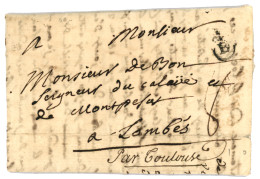 a Monsieur
Monsieur De Bon
Seigneur du calaüe et
de Montpesat
a Lombés
Par Toulouse